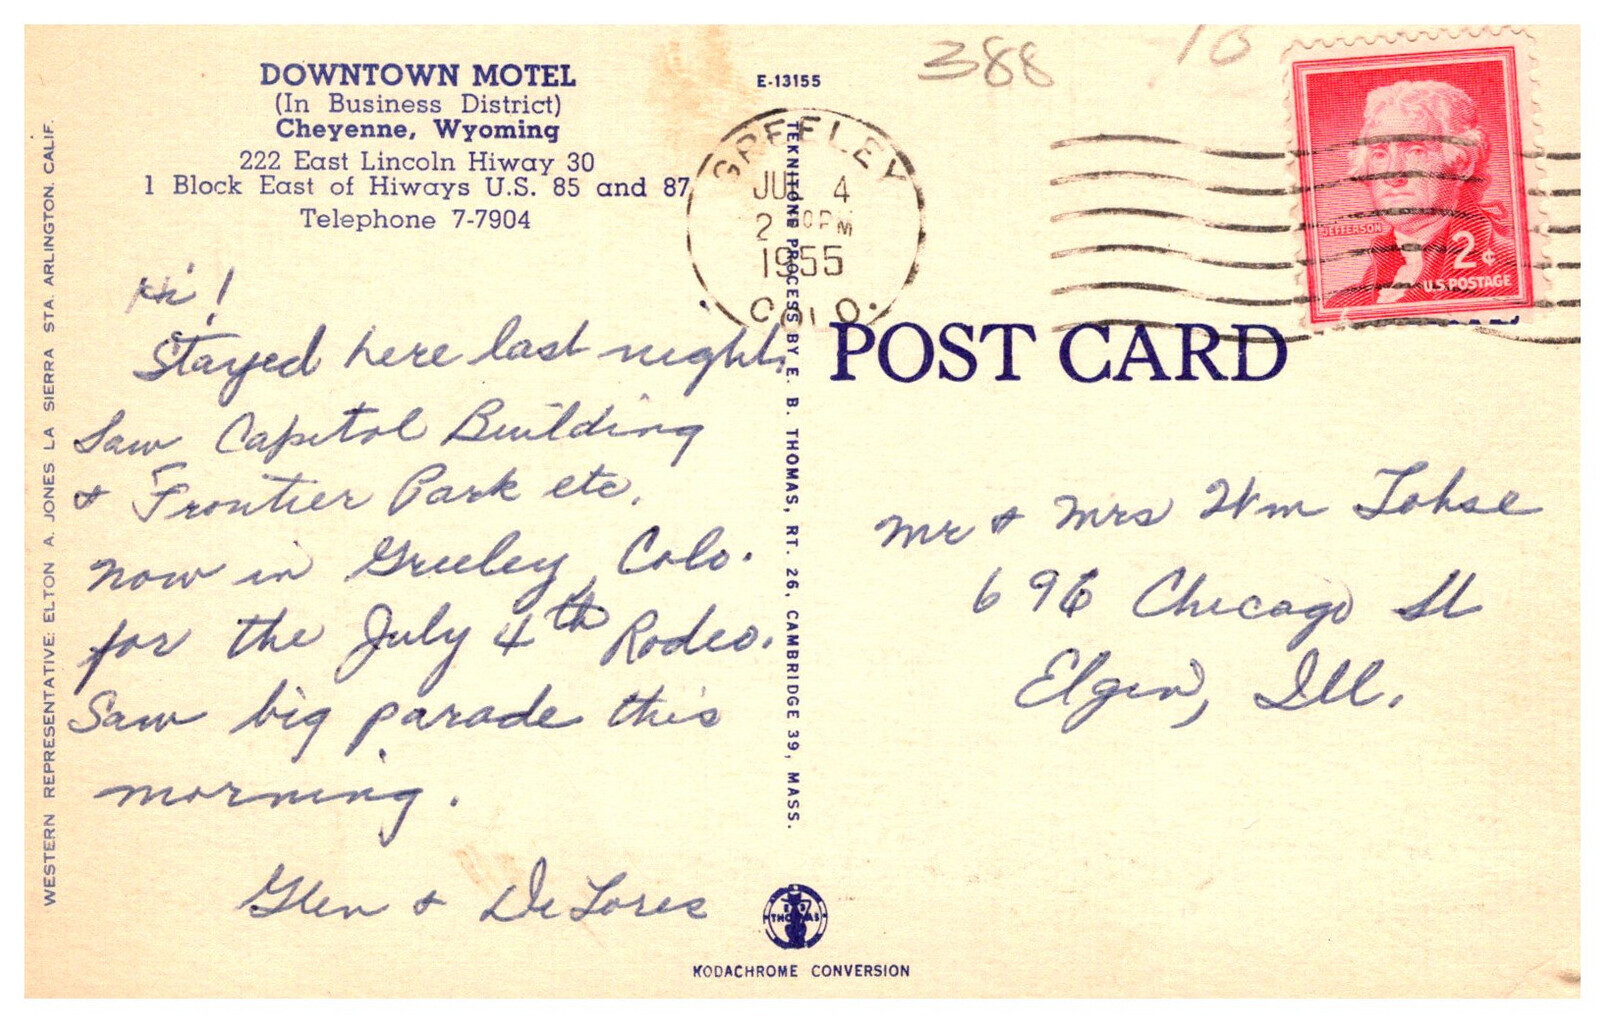 DOWNTOWN MOTEL
(In Business District)
Cheyenne, Wyoming
222 East Lincoln Hiway 30
1 Block East of Hiways U.S. 85 and 87
Telephone 7-7904
E-13155
388
10
GREELEY
JUL 4
2 PM
1955
COLO.
JEFFERSON
2¢
U.S. POSTAGE
POST CARD
Hi!
Stayed here last night.
Saw Capitol Building
& Frontier Park etc.
now in Greeley, Colo.
for the July 4th Rodeo.
Saw big parade this
morning.
Glen & DeLores
Mr & Mrs Wm Lohse
696 Chicago St
Elgin, Ill.
WESTERN REPRESENTATIVE: ELTON A. JONES LA SIERRA STA. ARLINGTON. CALIF.
TEKNITONE PROCESS BY E. B. THOMAS, RT. 26, CAMBRIDGE 39, MASS.
E B
THOMAS
KODACHROME CONVERSION